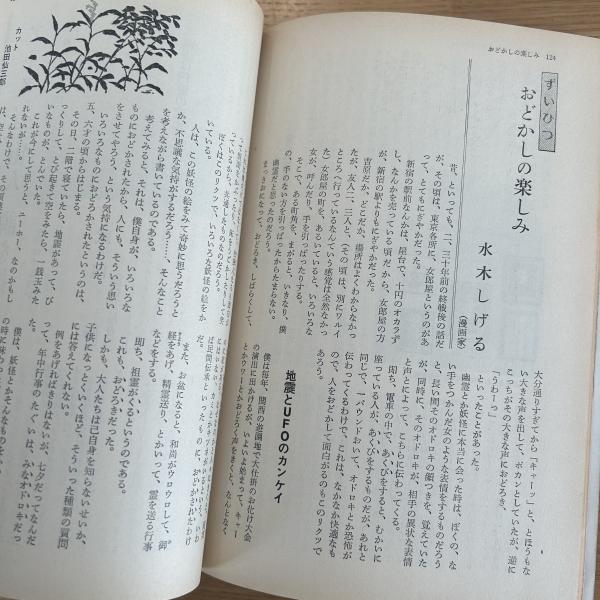 おどかしの楽しみ　124
ずいひつ
おどかしの楽しみ
水木しげる
（漫画家）
昔、といっても、二、三十年前の終戦後の話だ
が、その頃は、東京各所に、女郎屋というのがあ
って、とてもにぎやかだった。
新宿の駅前なんかは、屋台で、十円のオカラず
し、なんかを売っている頃だから、女郎屋の方
が、新宿の駅よりもにぎやかだった。
吉原だか、どこだか、場所はよくわからなかっ
たが、友人二、三人と、（その頃は、別にワルイ
ところへ行っているなんていう感覚は全然なかっ
た）女郎屋の町を、あるいていると、いろいろな
女が、呼んだり、手を引っぱったりする。
そこで、ある町角を、まがると、いきなり、僕
の、手のない方を引っぱったからたまらない。
幽霊だと思ったのだろう。
まっさおになって、おどろき、しばらくして、
大分通りすぎてから「キャーッ」と、とほうもな
い大きな声を出して、ポカンとしていたが、逆に
こっちがその大きな声におどろき、
「うわーっ」
といったことがあった。
幽霊とか妖怪に本当に会った時は、ぼくの、な
い手をつかんだ女のような表情をするものだろう
と、長い間そのオドロキの顔つきを、覚えていた
が、同時に、そのオドロキが、相手の異状な表情
と声とによって、こちらに伝わってくる。
即ち、電車の中で、あくびをすると、むかいに
座っている人が、あくびをするものだが、あれと
同じで、一バウンドおいて、オドロキとか恐怖が
伝わってくるわけで、これは、なかなか快適なも
ので、人をおどかして面白がるのもこのリクツで
あろう。
地震とUFOのカンケイ
僕は毎年、関西の遊園地で大仕掛のお化け大会
の演出に出かけるが、いよいよ始まって、キャー
とかウワーとかおどろく声をきくと、なんとなく
カット
池田仙三郎
ぼくはこのリクツで、いろいろな妖怪の絵をか
いている。
人は、この妖怪の絵をみて奇妙に思うだろうと
か、不思議な気持がするだろう……、そんなこと
を考えながら書いているのである。
考えてみると、それは、僕自身が、いろいろな
ものにおどかされたから、人にも、そういう思い
をさせてやろう、という気持になるわけだ。
いろいろなものにおどろかされたというのは、
五、六才の頃からはじまる。
その日、二階で寝ていたら、地震があって、び
っくりして、とび起きて空をみたら、一銭玉みた
いなものが、とんでいた。
これが今にして思うと、ユーホー、なのかもし
れないが……。
そんなわけで、その頃
また、お盆になると、和尚がウロウロして、“御
経をあげ、精霊送り、とかいって、霊を送る行事
などをする。
即ち、祖霊がくるというのである。
これも、おどろきだった。
しかも、大人たちは己自身を知らないせいか、
子供になっとくいくほど、そういった種類の質問
には答えてくれない。
例をあげればきりがないが、七夕だってなんだ
って、年中行事のたぐいは、みなオドロキだっ
た。
僕は、妖怪とかそんなものを、